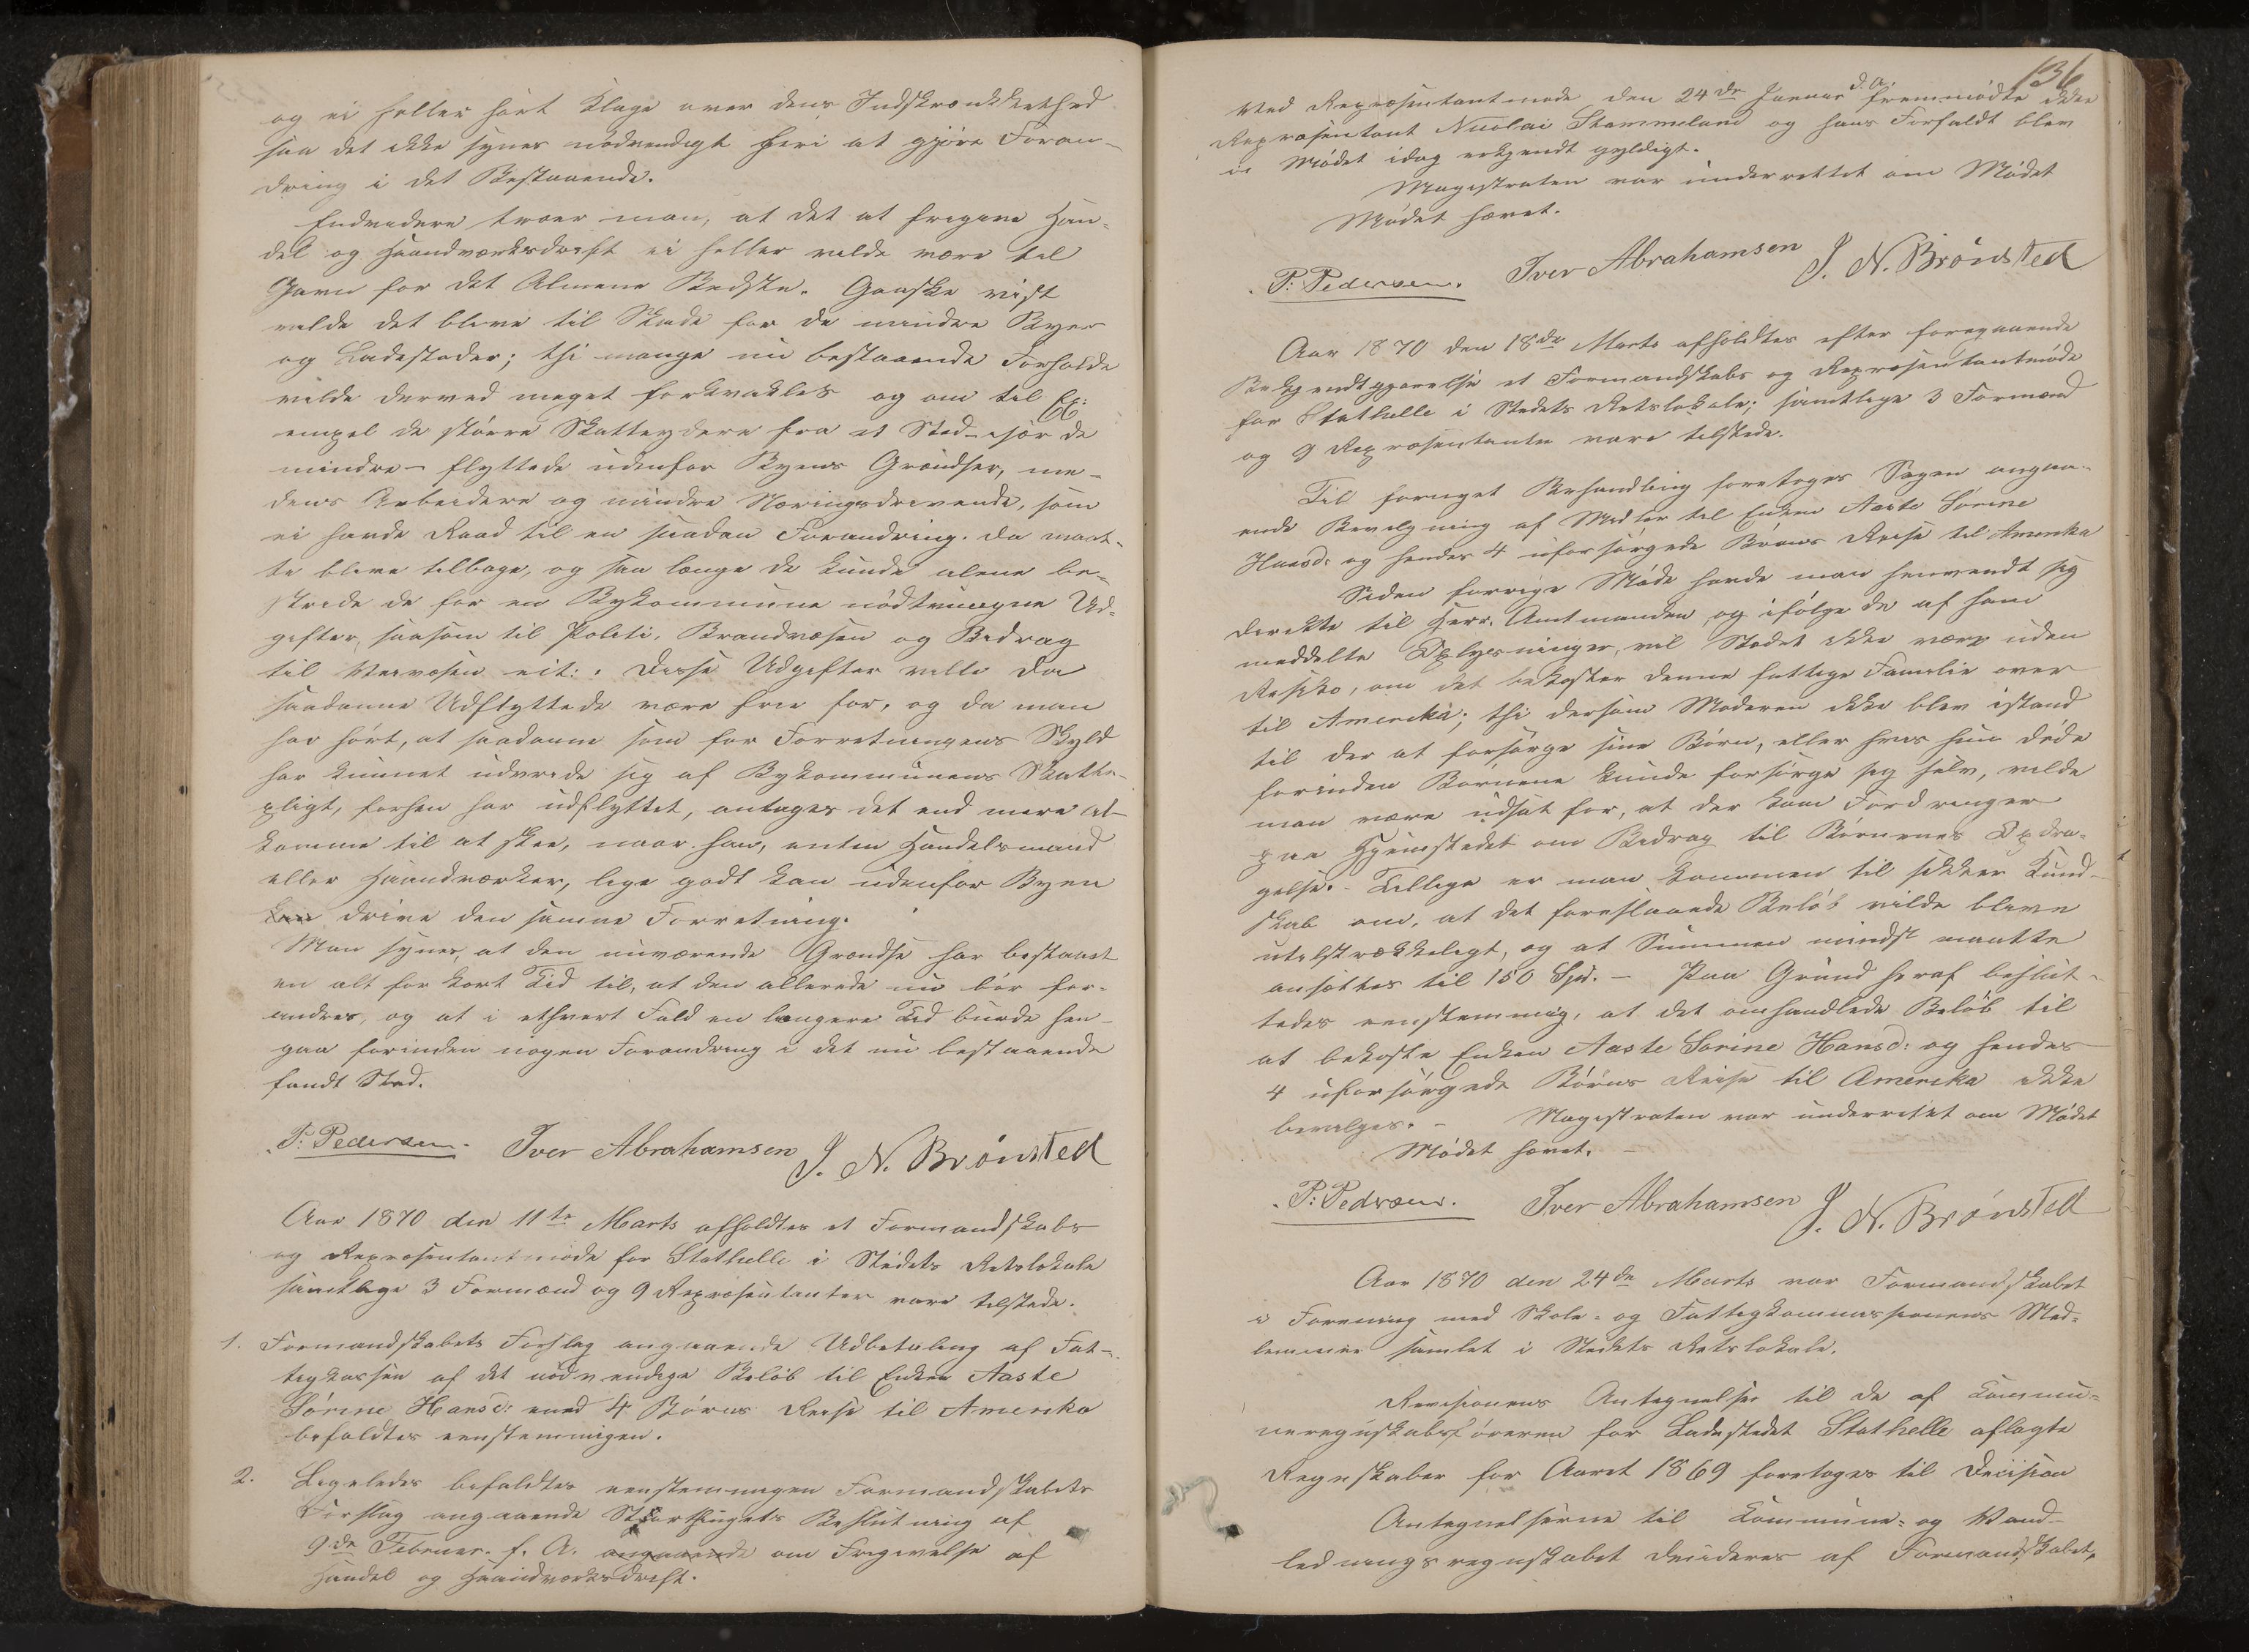 og ei heller hört Klage over dens Indskrænkkethed
saa det ikke synes nødvendigt heri at gjöre Foran-
dring i det Bestaaende.
Endvidere troer man, at det at frigive Han-
del og Haandværksdrift ei heller vilde være til
Gavn for det Almene Bedste. Ganske vist
vilde det blive til Skade for de mindre Byer
og Ladesteder; thi mange nu bestaaende Forholde
vilde derved meget forkvakles og om til Ex:
empel de større Skatteydere fra et Sted - især de
mindre - flyttede udenfor Byens Grændser, me-
dens Arbeidere og mindre Næringsdrivende, som
ei havde Raad til en saadan Forandring, da maat-
te blive tilbage, og saa længe de kunde alene be-
stride de for en Bykommune nødtvungne Ud-
gifter, saasom til Politi, Brandvæsen og Bidrag
til Veivæsen eit: . Disse Udgifter ville da
saadanne Udflyttede være frie for, og da man
har hört, at saadanne som for Forretningens Skyld
har kunnet udvride sig af Bykommunens Skatte-
pligt, forhen har udflyttet, antages det end mere at
komme til at skee, naar han, enten Handelsmand
eller Haandværker, lige godt kan udenfor Byen
kan drive den samme Forretning.
Man synes, at den nuværende Grændse har bestaaet
en alt for kort Tid til, at den allerede nu bör for-
andres, og at i ethvert Fald en længere Tid burde hen-
gaa forinden nogen Forandring i det nu bestaaende
fandt Sted.
P: Pedersen. Iver Abrahamsen J. N. Brönsted
Aar 1870 den 11te Marts afholdtes et Formandskabs
og Repræsentantmöde for Stathelle i Stedets Retslokale
samtlige 3 Formænd og 9 Repræsentanter vare tilstede.
1. Formandskabets Forslag angaaende Udbetaling af Fat-
tigkassen af det nödvendige Belöb til Enken Aaste
Sörine Hansd: med 4 Börns Reise til Amerika
befaldtes eenstemmigen.
2. Ligeledes befaldtes eenstemmigen Formandskabets
Forslag angaaende Storthingets Beslutning af
9de Februar f. A. angaaende om Frigivelse af
Handel og Haandværksdrift.
136
Ved Repræsentantmöde den 24de Januar d. A. fremmödte ikke
Repræsentant Nicolai Stammeland og hans Forfaldt blev
i Mödet idag erkjendt gyldigt.
Magistraten var underrettet om Mödet
Mödet hævet.
P: Pedersen. Iver Abrahamsen J. N. Brönsted
Aar 1870 den 18de Marts afholdtes efter foregaaende
Bekjendtgjørelse et Formandskabs og Repræsentantmöde
for Stathelle i Stedets Retslokale; samtlige 3 Formænd
og 9 Repræsentanter vare tilstede.
Til fornyet Behandling foretoges Sagen angaa-
ende Bevilgning af Midler til Enken Aaste Sörine
Hansd: og hendes 4 uforsörgede Börns Reise til Amerika
Siden forrige Möde havde man henvendt sig
direkte til Herr. Amtmanden, og ifölge de af ham
meddelte Oplysninger, vil Stedet ikke være uden
Risiko, om det bekoster denne fattige Familie over
til Amerika; thi dersom Moderen ikke blev istand
til der at forsörge sine Börn, eller hvis hun döde
forinden Börnene kunde forsörge sig selv, vilde
man være udsat for, at der kom Fordringer
paa Hjemstedet om Bidrag til Börnenes Opdra-
gelse. - Tillige er man kommen til sikker Kund-
skab om, at det foreslaaede Belöb vilde blive
utilstrækkeligt, og at Summen mindst maatte
ansættes til 150 Spd. - Paa Grund heraf beslut-
tedes eenstemmig, at det omhandlede Belöb til
at bekoste Enken Aaste Sorine Hansd: og hendes
4 uforsörgede Börns Reise til Amerika ikke
bevilges. - Magistraten var underrettet om Mödet
Mödet hævet. -
P: Pedersen. Iver Abrahamsen J. N. Brönsted
Aar 1870 den 24de Marts var Formandskabet
i Forening med Skole- og Fattigkommissionens Med-
lemmer samlet i Stedets Retslokale.
Revisionens Antegnelser til de af Kommu-
neregnskabsföreren for Ladestedet Stathelle aflagte
Regnskaber for Aaret 1869 foretoges til Decision
Antegnelserne til Kommune- og Vand-
ledningsregnskabet decideres af Formandskabet,